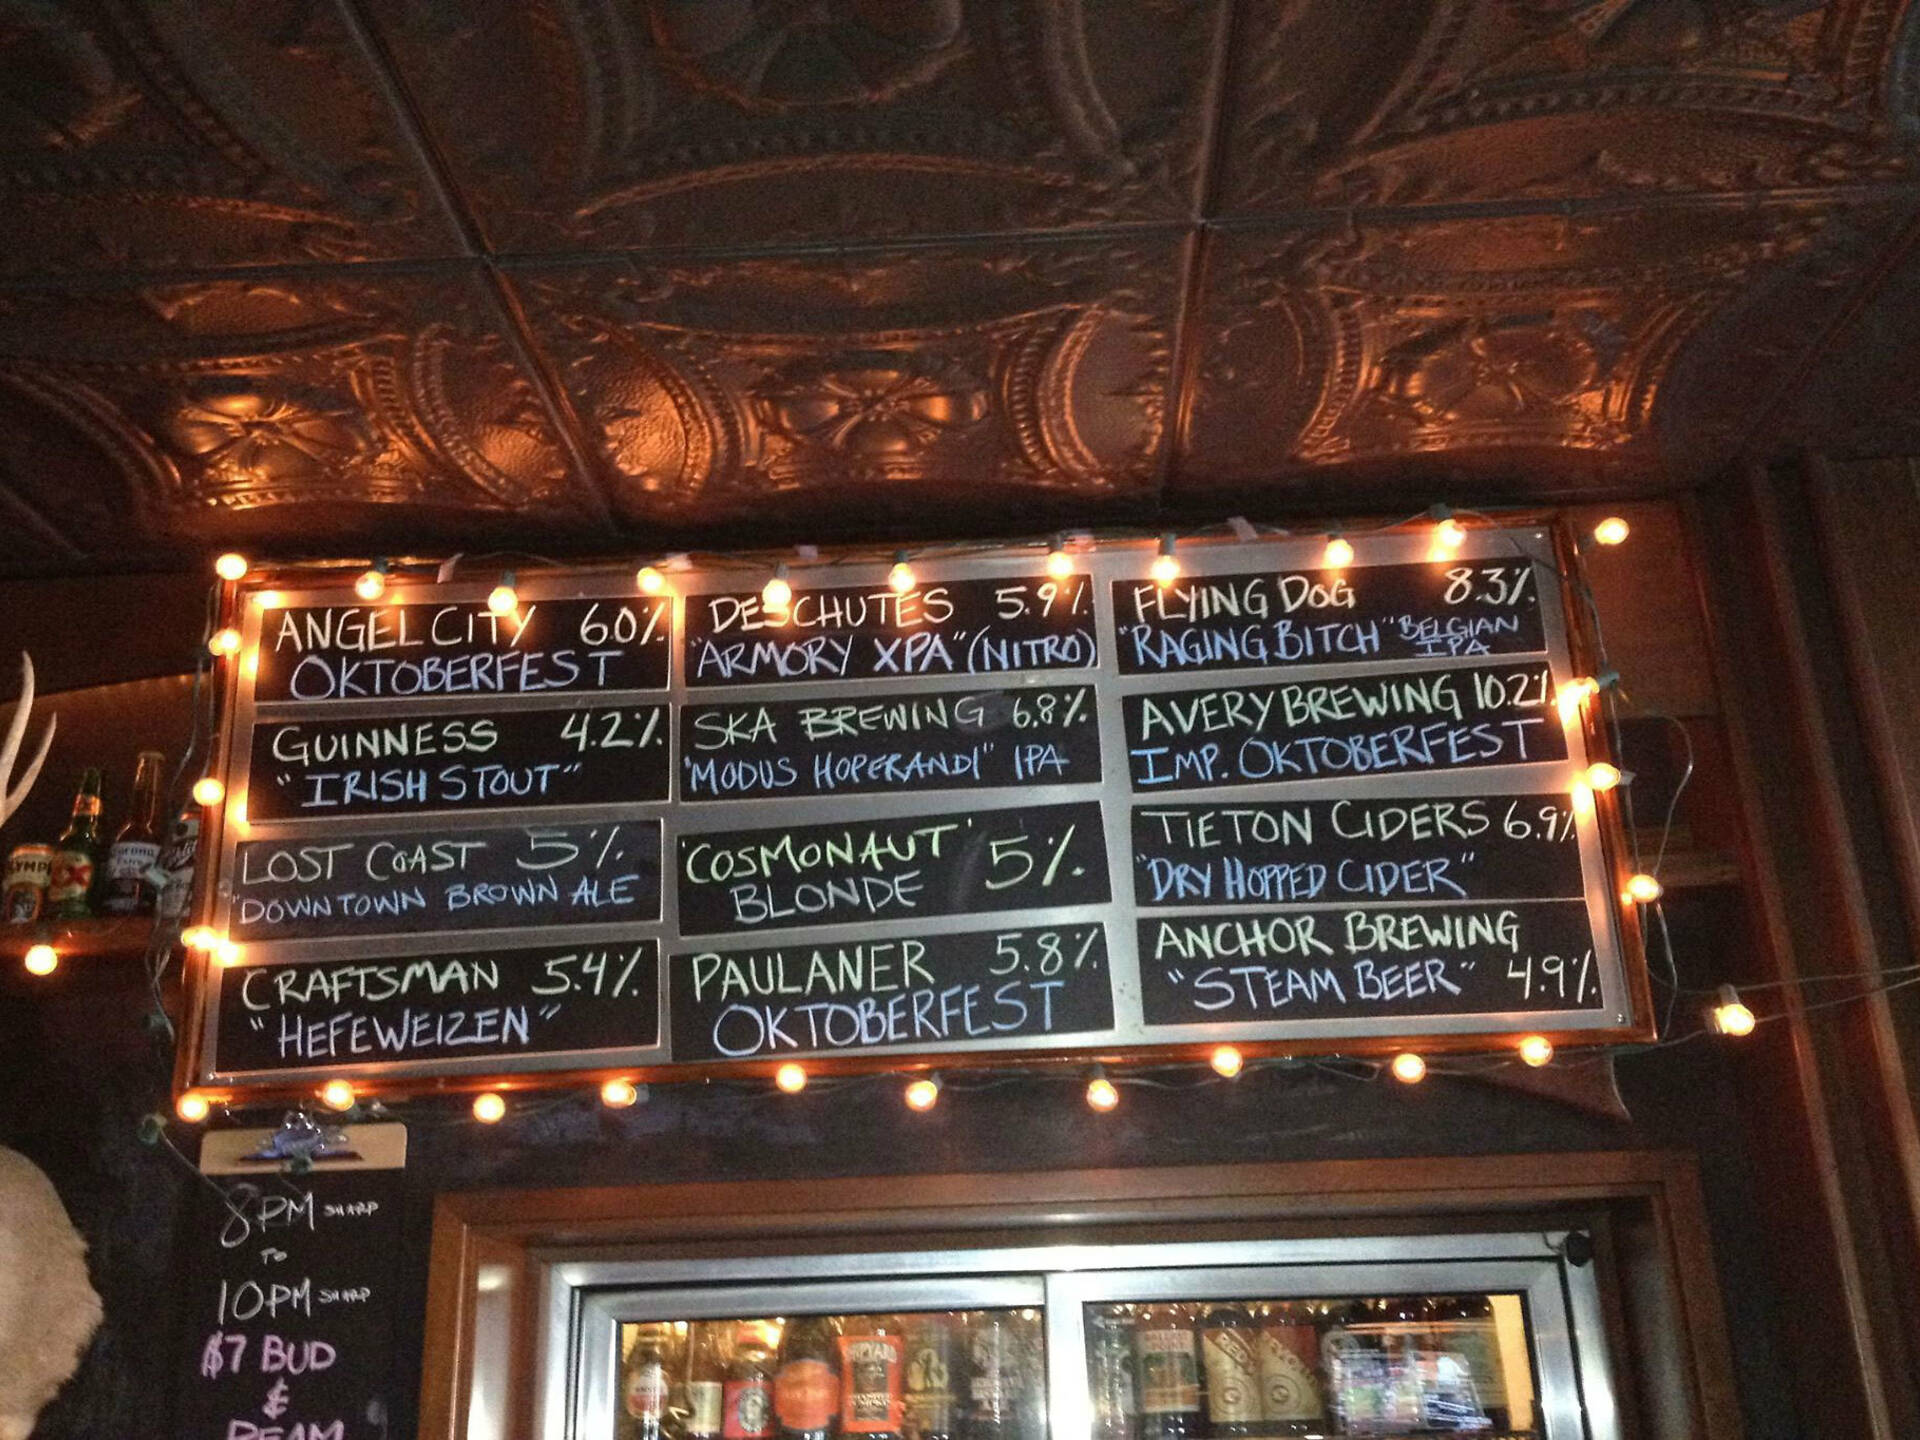 ANGEL CITY 6.0%
OKTOBERFEST
GUINNESS 4.2%
"IRISH STOUT"
LOST COAST 5%
"DOWNTOWN BROWN ALE
CRAFTSMAN 5.4%
"HEFEWEIZEN"
DESCHUTES 5.9%
"ARMORY XPA" (NITRO)
SKA BREWING 6.8%
"MODUS HOPERANDI" IPA
'COSMONAUT' 5%
BLONDE
PAULANER 5.8%
OKTOBERFEST
FLYING DOG 8.3%
"RAGING BITCH" BELGIAN
IPA
AVERY BREWING 10.2%
IMP. OKTOBERFEST
TIETON CIDERS 6.9%
"DRY HOPPED CIDER"
ANCHOR BREWING
"STEAM BEER" 4.9%
8PM SHARP
TO
10PM SHARP
$7 BUD
&
BEAM